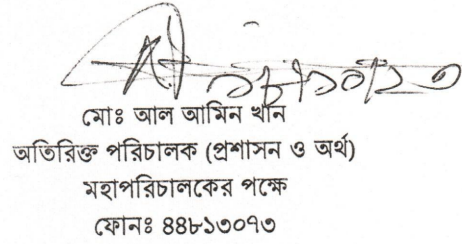 মোঃ আল আমিন খান
অতিরিক্ত পরিচালক (প্রশাসন ও অর্থ)
মহাপরিচালকের পক্ষে
ফোনঃ ৪৪৮১৩০৭৩